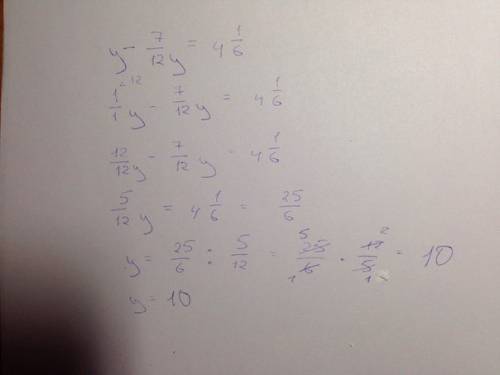 y - 7/12 y = 4 1/6
1/1 ·12 y - 7/12 y = 4 1/6
12/12 y - 7/12 y = 4 1/6
5/12 y = 4 1/6 = 25/6
y = 25/6 : 5/12 = 25 5/6 1 · 12 2/5 1 = 10
y = 10